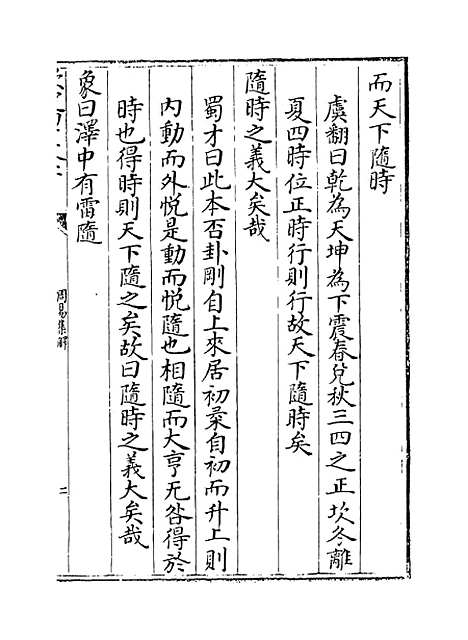 而天下隨時
虞翻曰乾為天坤為下震春兌秋三四之正坎冬離
夏四時位正時行則行故天下隨時矣
隨時之義大矣哉
蜀才曰此本否卦剛自上來居初柔自初而升上則
內動而外悅是動而悅隨也相隨而大亨无咎得於
時也得時則天下隨之矣故曰隨時之義大矣哉
象曰澤中有雷隨
周易集解
二